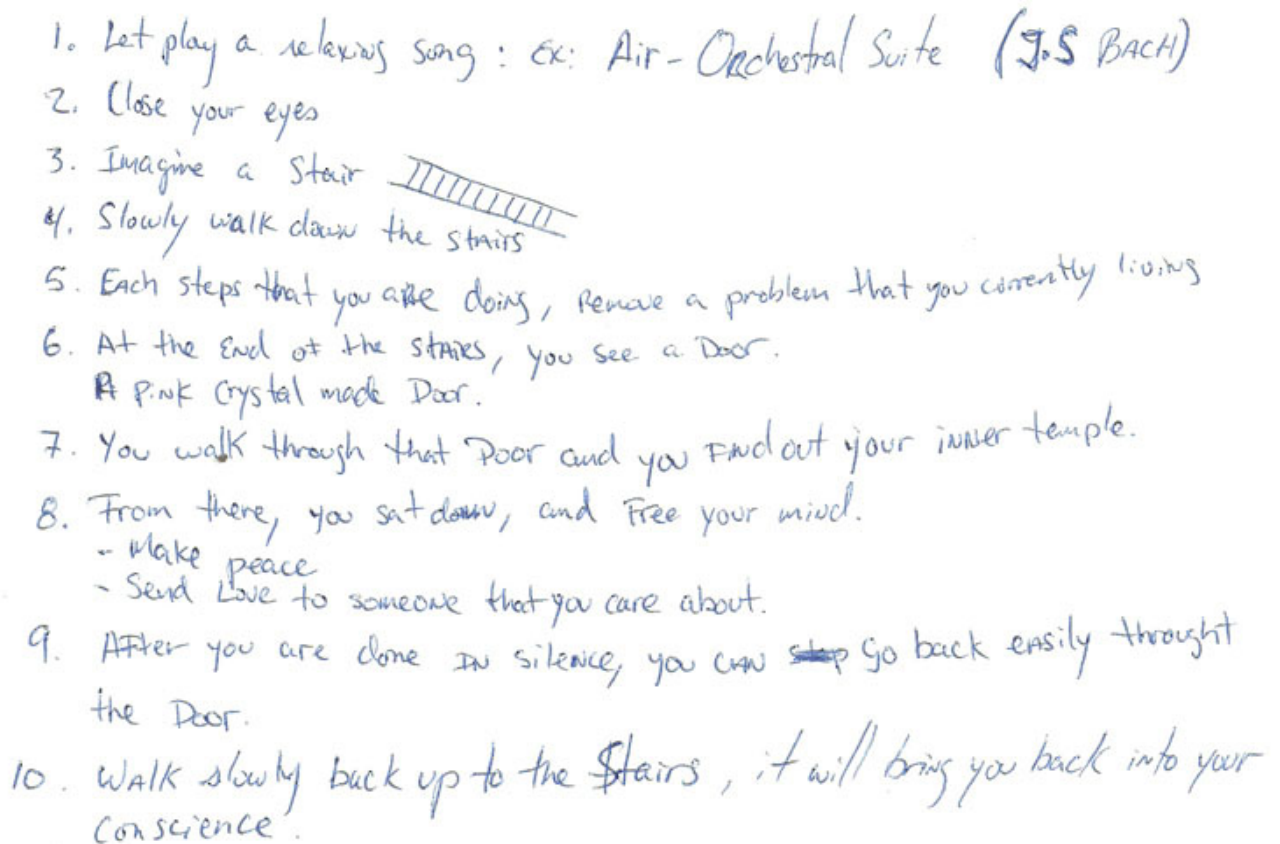 1. Let play a relaxing song : Ex: Air - Orchestral Suite (J.S BACH)
2. Close your eyes
3. Imagine a Stair
4. Slowly walk down the stairs
5. Each steps that you are doing, Remove a problem that you currently living
6. At the End of the stairs, you see a Door.
A pink Crystal made Door.
7. You walk through that Door and you Find out your inner temple.
8. From there, you sat down, and Free your mind.
- Make peace
- Send Love to someone that you care about.
9. After you are done in silence, you can go back easily throught
the Door.
10. Walk slowly back up to the Stairs, it will bring you back into your
Conscience.